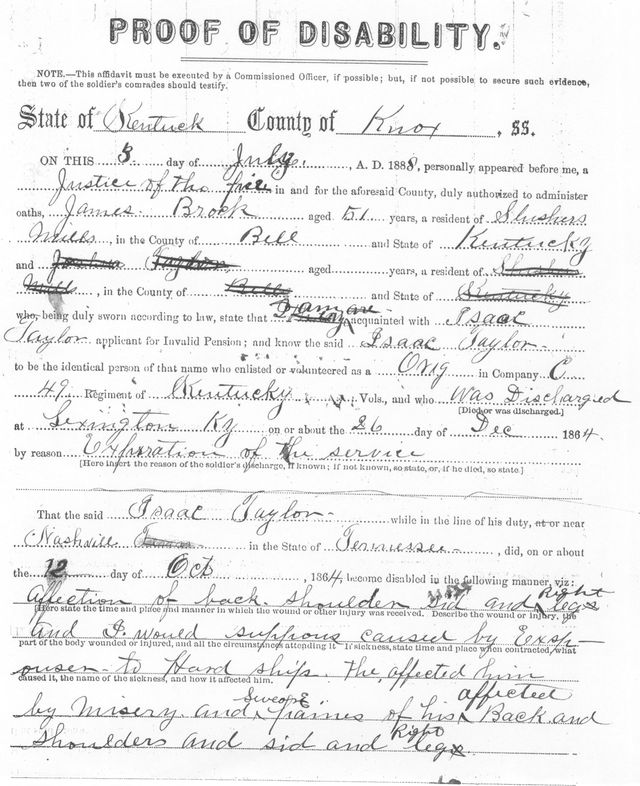 PROOF OF DISABILITY.
NOTE.—This affidavit must be executed by a Commissioned Officer, if possible; but, if not possible to secure such evidence,
then two of the soldier's comrades should testify.
State of Kentuck County of Knox, SS.
ON THIS 3 day of July, A. D. 1888, personally appeared before me, a
Justice of the in and for the aforesaid County, duly authorized to administer
oaths, James Brock aged 51 years, a resident of Slushers
Mills, in the County of Bell and State of Kentucky
and Joshua Taylor aged years, a resident of Slusher
Mill, in the County of Bell and State of Kentucky
who, being duly sworn according to law, state that acquainted with Isaac
Taylor applicant for Invalid Pension; and know the said Isaac Taylor
to be the identical person of that name who enlisted or volunteered as a in Company C
49 Regiment of Kentucky Vols., and who Was Discharged
[Died or was discharged.]
at Lexington Ky on or about the 26 day of Dec 1864.
by reason Exparation of the service
[Here insert the reason of the soldier's discharge, if known; if not known, so state, or, if he died, so state.]
That the said Isaac Taylor while in the line of his duty, at or near
Nashvill in the State of Tennessee, did, on or about
the 12 day of Oct, 1864, become disabled in the following manner, viz:
affection of back shoulder sid and Right legs
[Here state the time and place and manner in which the wound or other injury was received. Describe the wound or injury, the
and I would suppious caused by Exsp-
part of the body wounded or injured, and all the circumstances attending it. If sickness, state time and place when contracted, what
ouser to Hard ship. The affected him
caused it, the name of the sickness, and how it affected him.
by misery and Sweape paines of his affected Back and
shoulders and sid and Right legs